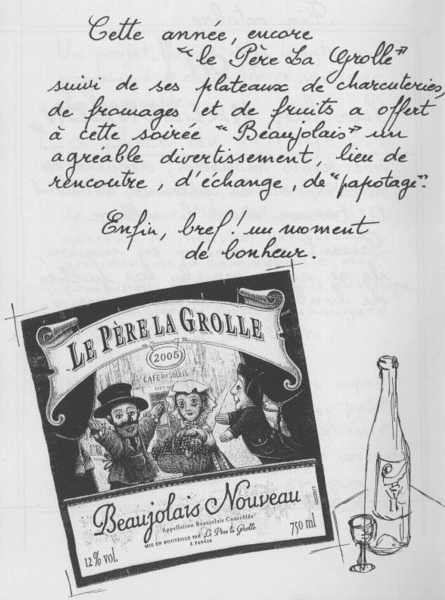 Cette année, encore
"le Père La Grolle"
suivi de ses plateaux de charcuteries,
de fromages et de fruits a offert
à cette soirée "Beaujolais" un
agréable divertissement, lieu de
rencontre, d'échange, de "papotage".
Enfin, bref! un moment
de bonheur.
LE PÈRE LA GROLLE
2005
Beaujolais Nouveau
Appellation Beaujolais Contrôlée
12% vol.
MIS EN BOUTEILLE PAR Le Père la Grolle
750 ml